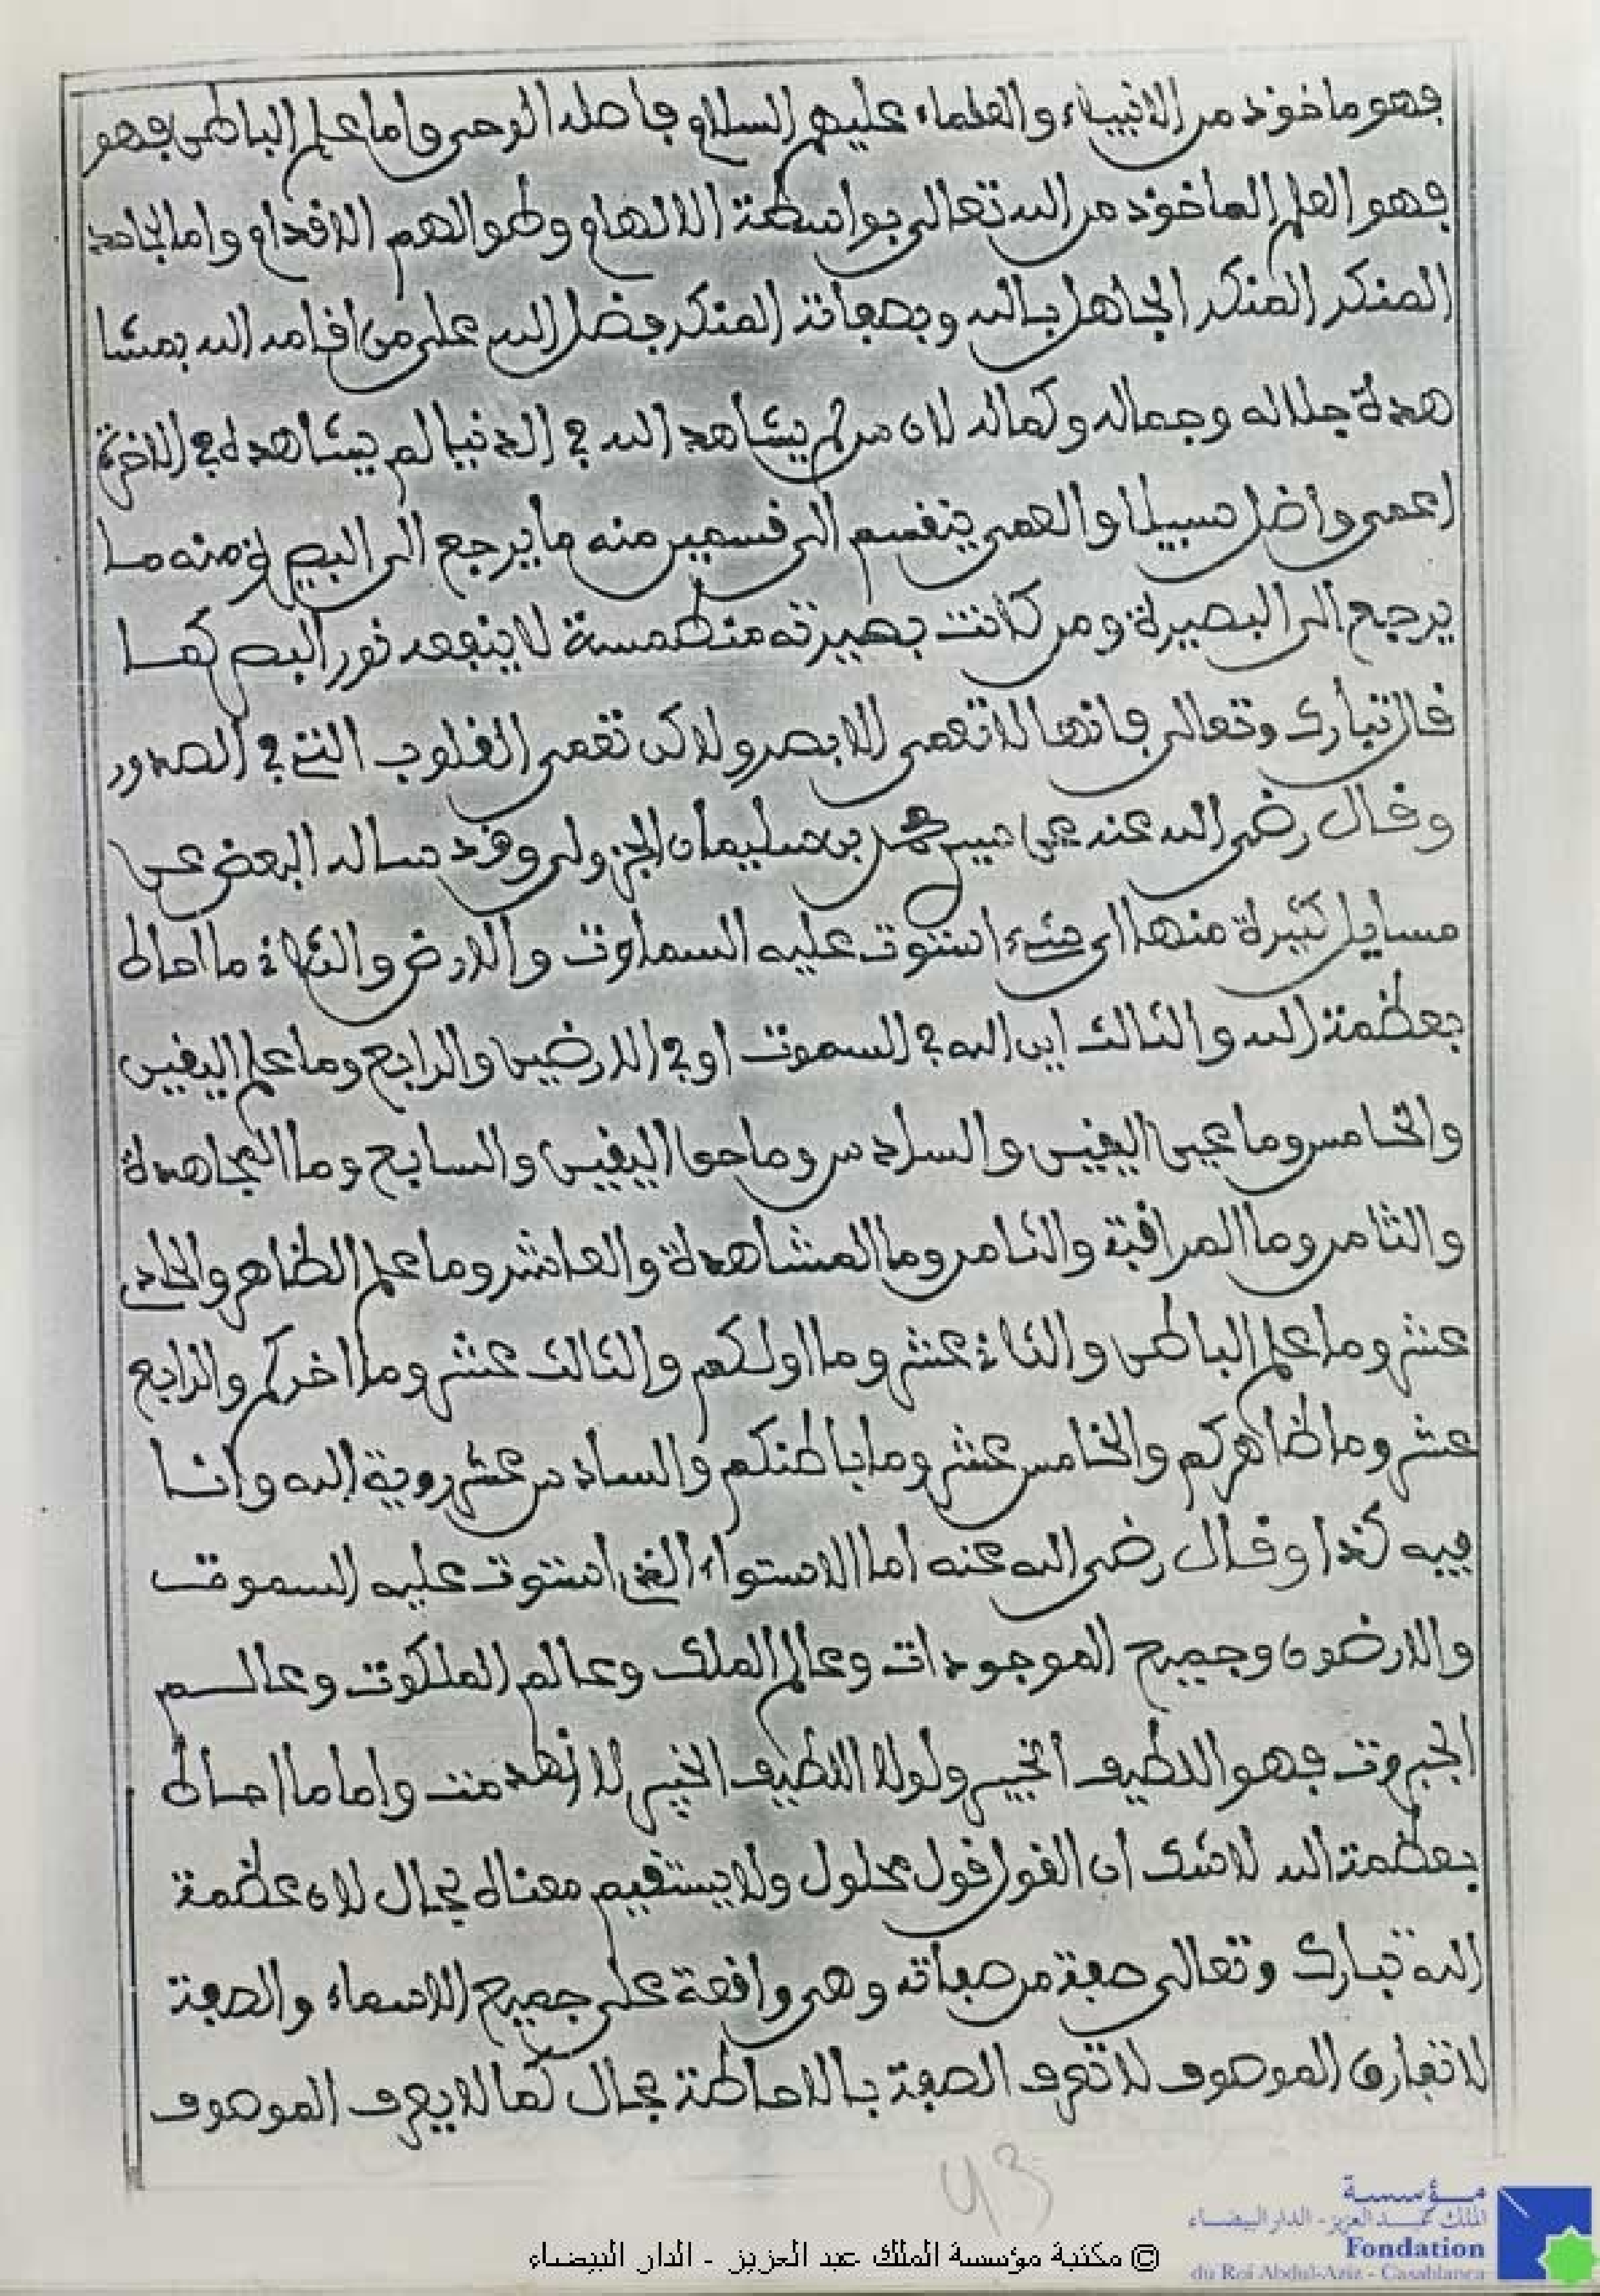 فهو ماخوذ من الانبياء والعلماء عليهم السلام فاصله الوحي واما علم الباطن فهو
فهو العلم الماخوذ من الله تعالى بواسطة الالهام وطوالهم الاقدام واما الجاحد
المنكر المنكر الجاهل بالله وبصفاته المنكر فضل الله على من اقامه الله بمشا
هدة جلاله وجماله وكماله لان من لم يشاهد الله في الدنيا لم يشاهده في الاخرة
اعمى واضل سبيلا والعمى ينقسم الى قسمين منه ما يرجع الى البصر ومنه ما
يرجع الى البصيرة ومن كانت بصيرته منطمسة لا ينفعه نور البصر كما
قال تبارك وتعالى فانها لا تعمى الابصر ولاكن تعمى القلوب التي في الصدور
وقال رضي الله عنه عن محمد بن سليمان الجزولي وقد ساله البعض عن
مسايل كثيرة منها اي شيء استوت عليه السماوت والارض والثاني ما احاط
بعظمة الله والثالث اين الله في السموت او في الارضين والرابع وما علم اليقين
والخامس وما عين اليقين والسادس وما حق اليقين والسابع وما المجاهدة
والثامن وما المراقبة والثامن وما المشاهدة والعاشر وما علم الظاهر والحادي
عشر وما علم الباطن والثاني عشر وما اولكم والثالث عشر وما اخركم والرابع
عشر وما ظاهركم والخامس عشر وما باطنكم والسادس عشر روية الله وانسا
فيه كذا وقال رضي الله عنه اما الاستواء الذي استوت عليه السموت
والارضون وجميع الموجودات وعالم الملك وعالم الملكوت وعالم
الجبروت فهو اللطيف الخبير ولولا اللطيف الخبير لانهدمت واما ما احاط
بعظمة الله لاشك ان القول قول محلول ولا يستقيم معناه بحال لان عظمة
الله تبارك وتعالى صفة من صفاته وهي واقعة على جميع الاسماء والصفة
لا تفارق الموصوف لا تعرف الصفة بالاحاطة بحال كما لا يعرف الموصوف
43
مؤسسة
الملك عبد العزيز - الدار البيضاء
Fondation
du Roi Abdul-Aziz - Casablanca
© مكتبة مؤسسة الملك عبد العزيز - الدار البيضاء